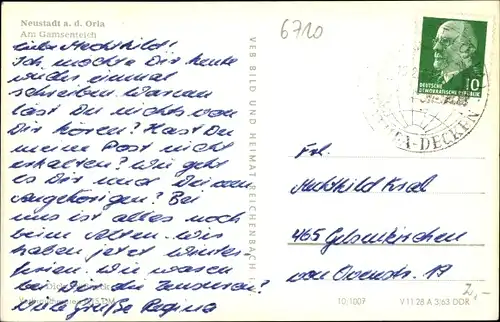 Neustadt a. d. Orla
Am Gamsenteich
6720
Liebe Mechthild!
Ich möchte Dir heute
wieder einmal
schreiben. Warum
läst Du nichts von
Dir hören? Hast Du
meine Post nicht
erhalten? Wie geht
es Dir und Deinen
Angehörigen? Bei
uns ist alles noch
beim alten. Wir
haben jetzt Winter-
ferien. Wie waren
bei Dir die Zensuren?
Viele Grüße Regina
VEB BILD UND HEIMAT REICHENBACH i.
DEUTSCHE
DEMOKRATISCHE REPUBLIK
10
DECKEN
Frl.
Mechthild
465 Gelsenkirchen
19
2,-
10/1007 V 11 28 A 3/63 DDR